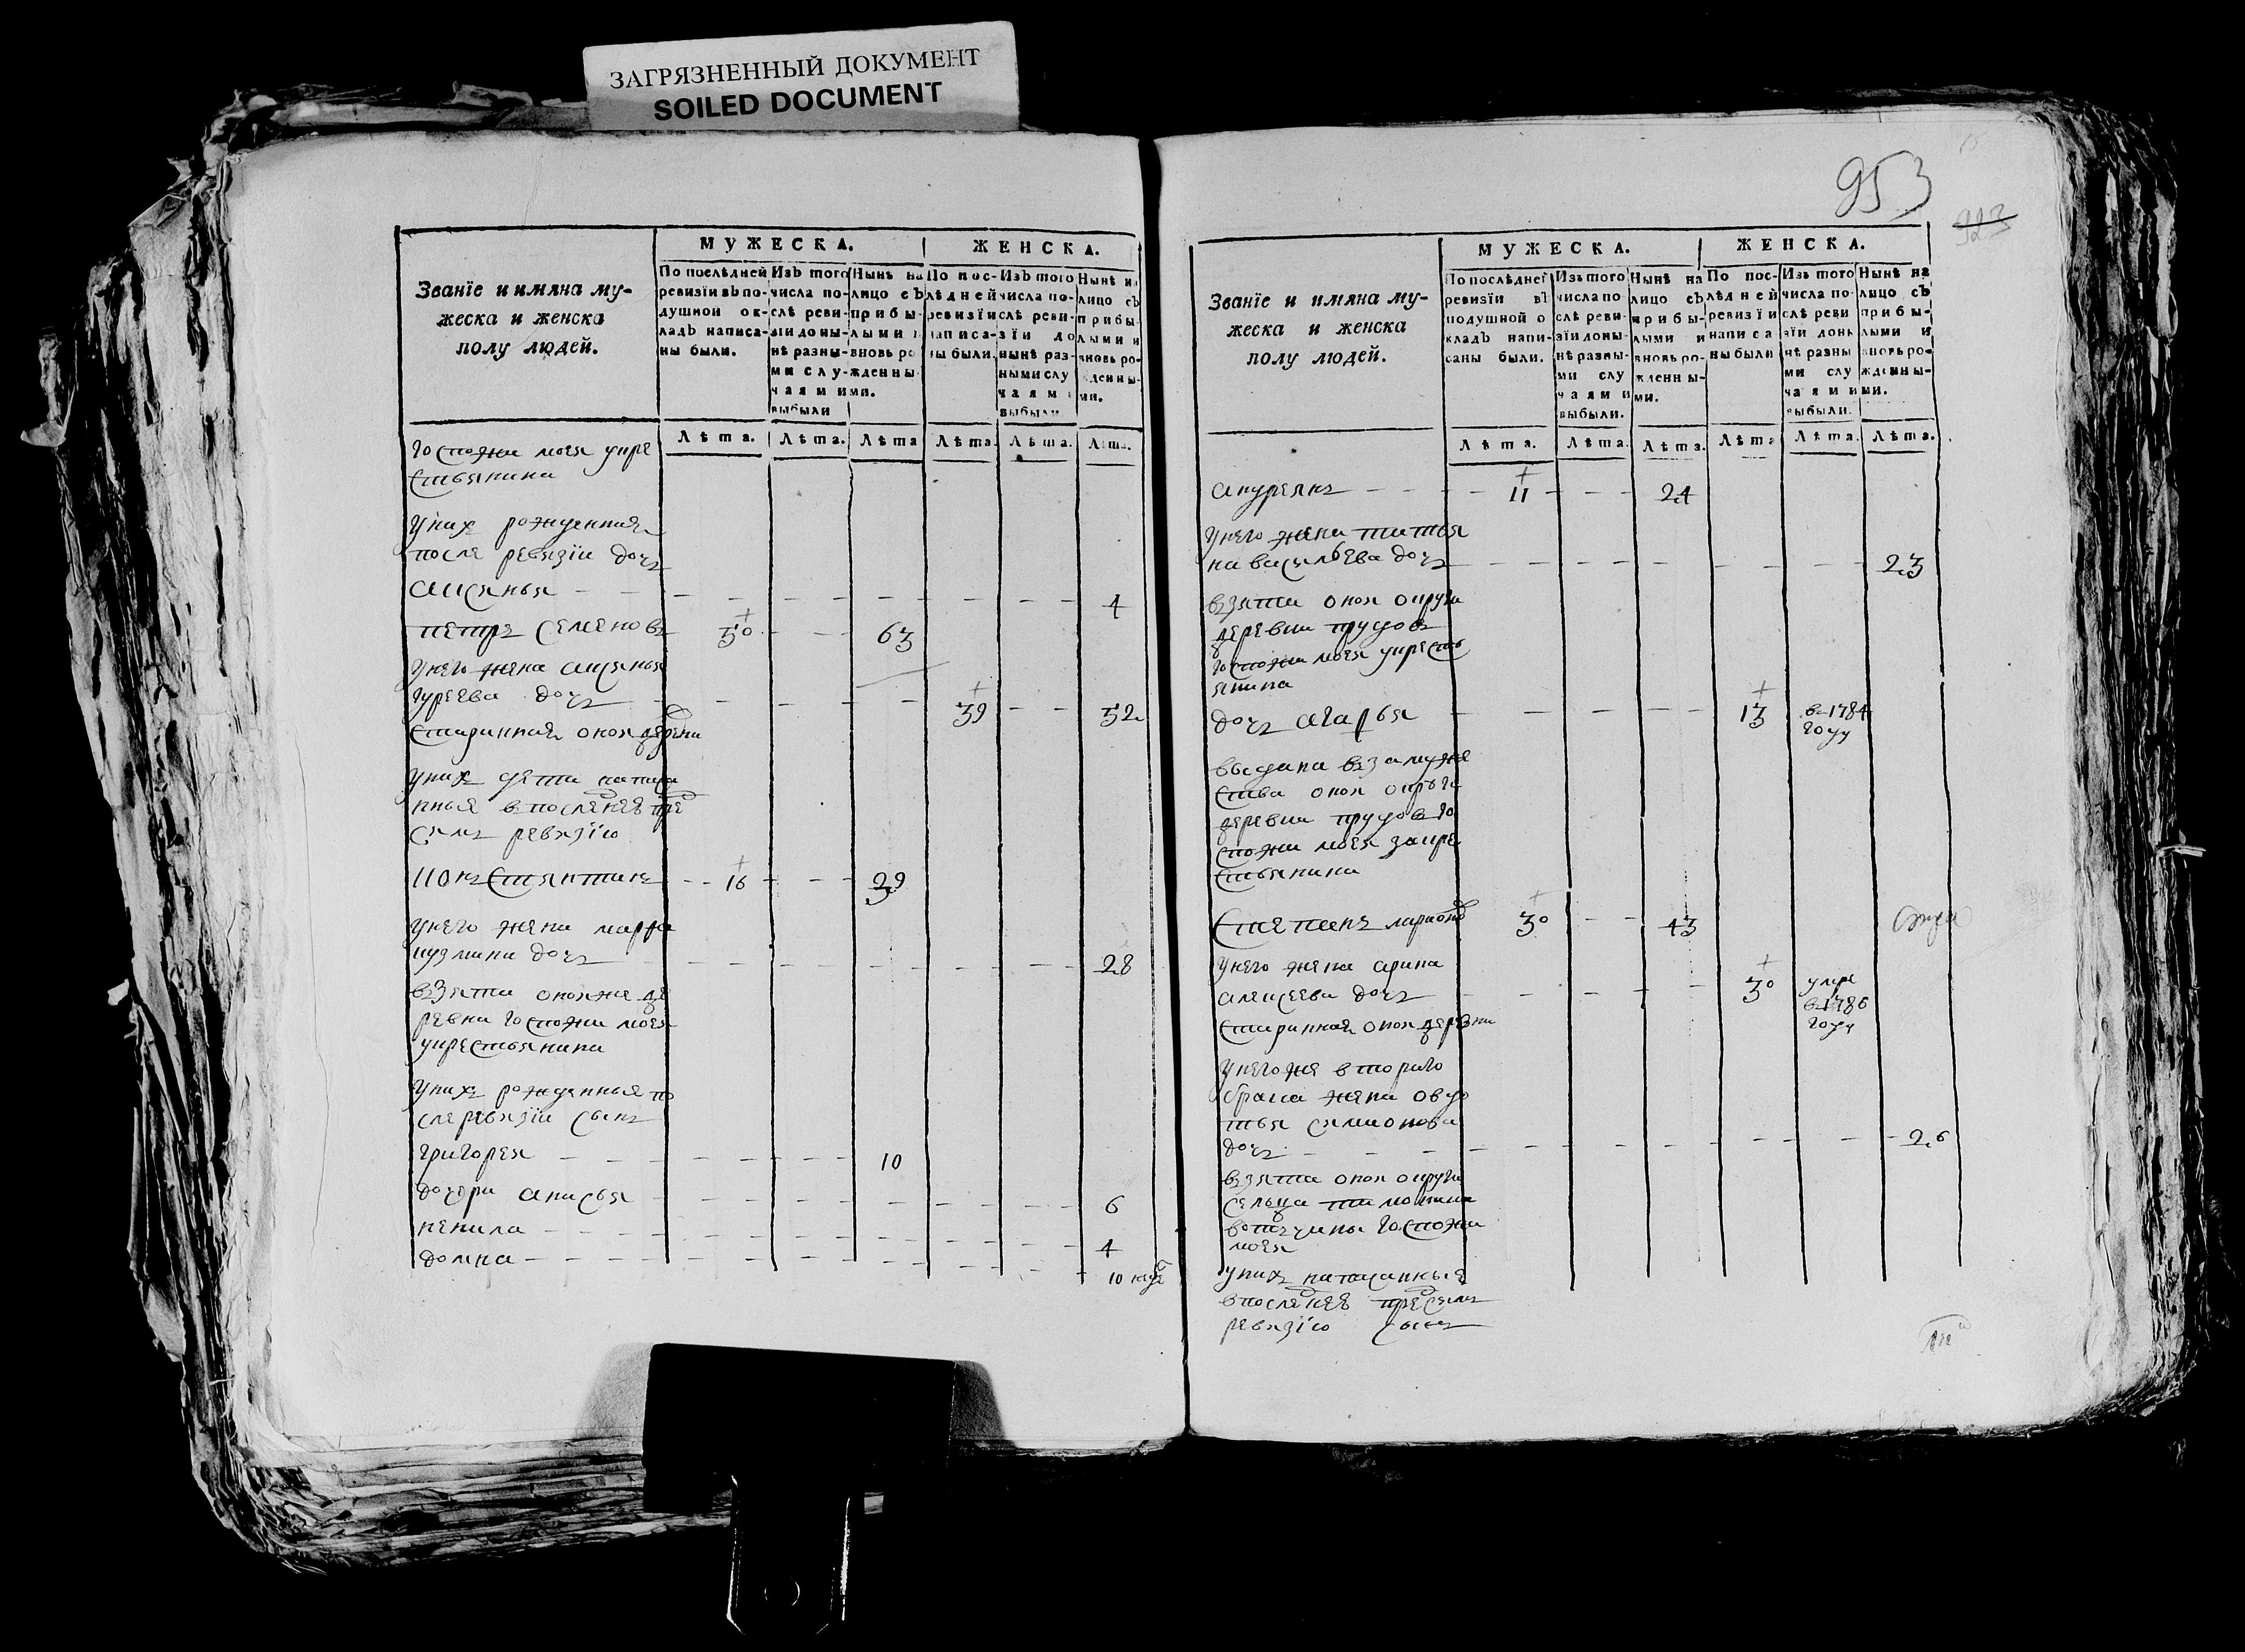 ЗАГРЯЗНЕННЫЙ ДОКУМЕНТ
SOILED DOCUMENT
МУЖЕСКА. ЖЕНСКА.
Званїе и имяна му-
жеска и женска
полу людей.
По послѣдней
ревизїи въ по-
душной ок-
ладъ написа-
ны были.
Изъ того
числа по-
слѣ реви-
зїи доны-
нѣ разны-
ми слу-
чаями
выбыли
Нынѣ на
лицо съ
прибы-
лыми и
вновь ро
жденны-
ми.
По пос-
лѣдней
ревизїи
написа-
ны были.
Изъ того
числа по-
слѣ реви-
зїи до
нынѣ раз-
ными слу
чаями
выбыли
Нынѣ на
лицо съ
прибы-
лыми и
вновь ро-
жденны-
ми.
Лѣта. Лѣта. Лѣта Лѣта. Лѣта. Лѣта.
госпожи моея укре
стьянина
у них рожденная
после ревизїи дочь
аксинья 4
петръ семеновъ 50 63
у него жена аксинья
гуреева дочь 39 52
старинная оной деревни
у них дети написа
нные в последнею пре
симъ ревизїю
констянтинъ 16 29
у него жена марфа
кузмина дочь 28
взята оной же де
ревни госпожи моея
укрестьянина
у нихъ рожденные по
сле ревизїи сынъ
григорей 10
дочери анисья 6
ненила 4
домна 10 неде
953
923
МУЖЕСКА. ЖЕНСКА.
Званїе и имяна му-
жеска и женска
полу людей.
По послѣдней
ревизїи въ
подушной о
кладъ напи-
саны были.
Изъ того
числа по
слѣ реви-
зїи доны-
нѣ разны-
ми слу
чаями
выбыли.
Нынѣ на
лицо съ
прибы-
лыми и
вновь ро-
жденны-
ми.
По пос-
лѣдней
ревизїи
написа
ны были
Изъ того
числа по-
слѣ реви
зїи доны
нѣ разны
ми слу
чаями
выбыли.
Нынѣ на
лицо съ
прибы-
лыми и
вновь ро-
жденны-
ми.
Лѣта. Лѣта. Лѣта. Лѣта Лѣта. Лѣта.
андреянъ 11 24
у него жена татья
на васильева дочь 23
взята оной округи
деревни прудовъ
госпожи моея укресть
янина
дочь агафья 13 в 1784
году
выдана в замуже
ства оной округи
деревни прудовъ го
спожи моея за кре
стьянина
степанъ ларионов 30 43
у него жена арина
алексеева дочь 30 умре
в 1786
году
старинная оной деревни
у него же втораго
брака жена овдо
тья симионова
дочь 26
взята оной округи
сельца
вотчины госпожи
моея
у нихъ написанныя
в последнею пресимъ
ревизїю сынъ